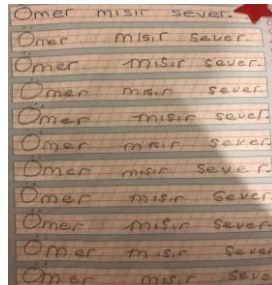 Ömer mısır sever.
Ömer mısır sever.
Ömer mısır sever.
Ömer mısır sever.
Ömer mısır sever.
Ömer mısır sever.
Ömer mısır sever.
Ömer mısır sever
Ömer mısır sever
Ömer mısır sever
Ömer mısır seve